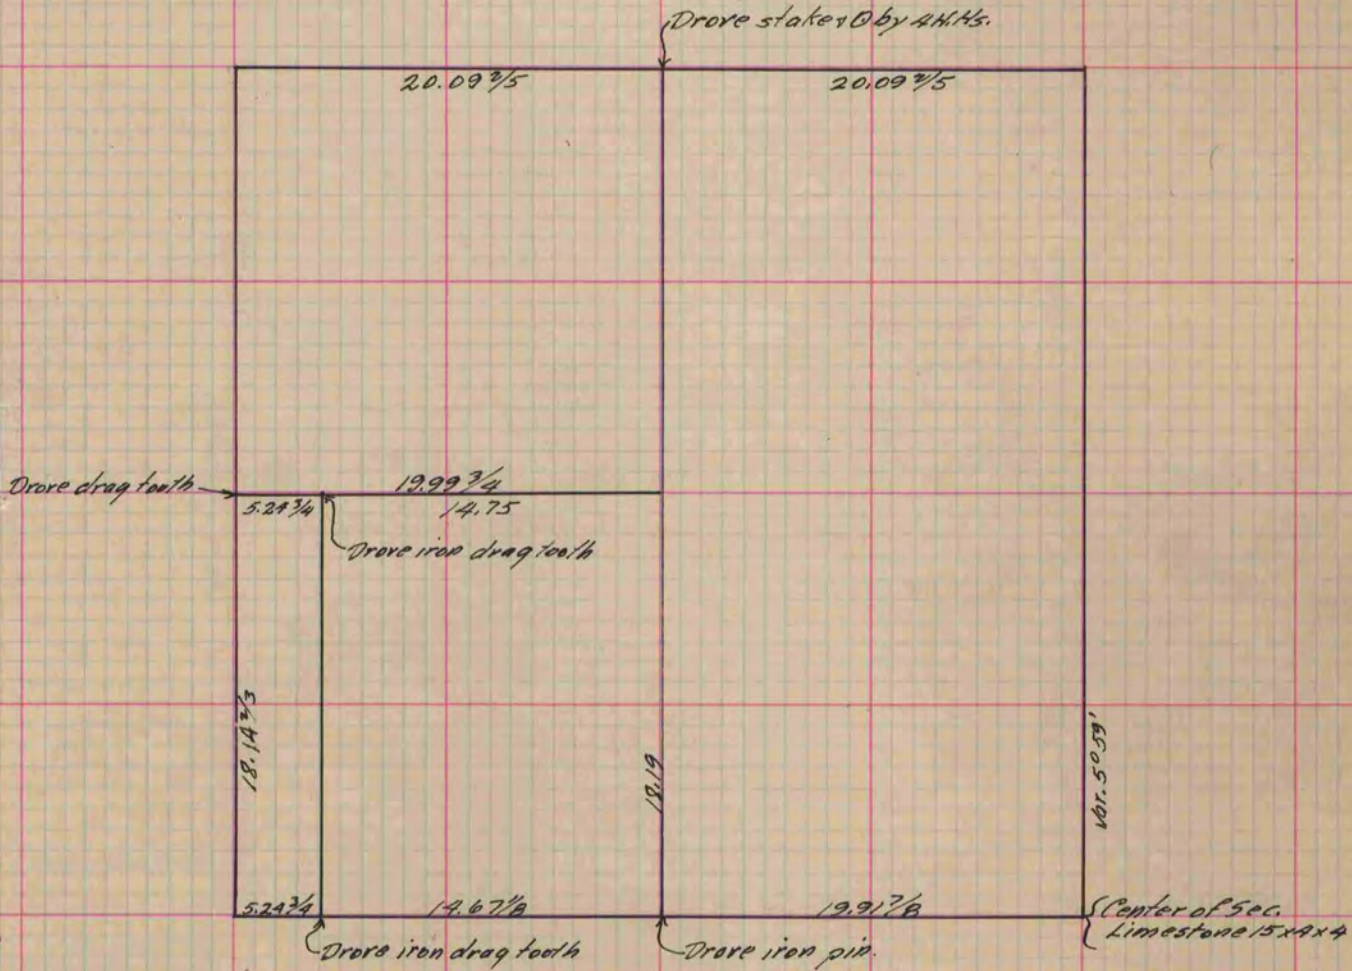 Drove stake & O by 4H.Hs.
20.09 2/5
20.09 2/5
Drove drag tooth
19.99 3/4
5.24 3/4
14.75
Drove iron drag tooth
18.14 2/3
18.19
Var. 5° 59'
5.24 3/4
14.67 1/8
19.91 7/8
Center of Sec.
Limestone 15x4x4
Drove iron drag tooth
Drove iron pin.